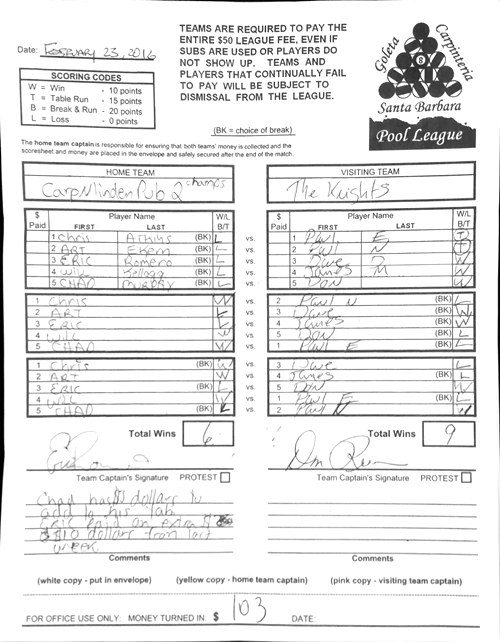 Date: February 23, 2016
TEAMS ARE REQUIRED TO PAY THE
ENTIRE $50 LEAGUE FEE, EVEN IF
SUBS ARE USED OR PLAYERS DO
NOT SHOW UP. TEAMS AND
PLAYERS THAT CONTINUALLY FAIL
TO PAY WILL BE SUBJECT TO
DISMISSAL FROM THE LEAGUE.
(BK = choice of break)
SCORING CODES
W = Win - 10 points
T = Table Run - 15 points
B = Break & Run - 20 points
L = Loss - 0 points
Goleta
Carpinteria
8
Santa Barbara
Pool League
The home team captain is responsible for ensuring that both teams' money is collected and the
scoresheet and money are placed in the envelope and safely secured after the end of the match.
HOME TEAM
Carp Minden Pub 2 champs
VISITING TEAM
The Knights
$ Paid Player Name FIRST LAST W/L B/T
1 Chris Atkins (BK) L vs. 1 Paul E T
2 ART Ekern (BK) L vs. 2 Paul N T
3 ERIC Romero (BK) L vs. 3 Dave D W
4 Will Kellogg (BK) L vs. 4 James M W
5 CHAD MURPHY (BK) L vs. 5 DON W
1 Chris W vs. 2 Paul N (BK) L
2 ART L vs. 3 Dave (BK) W
3 Eric vs. 4 James (BK) W
4 Will W vs. 5 Don (BK) L
5 CHAD W vs. 1 Paul E (BK) L
1 Chris (BK) L vs. 3 Dave
2 ART W vs. 4 James (BK) L
3 ERIC (BK) L vs. 5 Don W
4 Will W vs. 1 Paul E (BK) L
5 CHAD (BK) L vs. 2 Paul N W
Total Wins 6
Total Wins 9
Team Captain's Signature PROTEST
Team Captain's Signature PROTEST
Chad has $ dollars to
add to his tab.
ERIC Paid an extra $
$10 dollars from last
week
Comments
Comments
(white copy - put in envelope) (yellow copy - home team captain) (pink copy - visiting team captain)
FOR OFFICE USE ONLY: MONEY TURNED IN: $ 103 DATE: